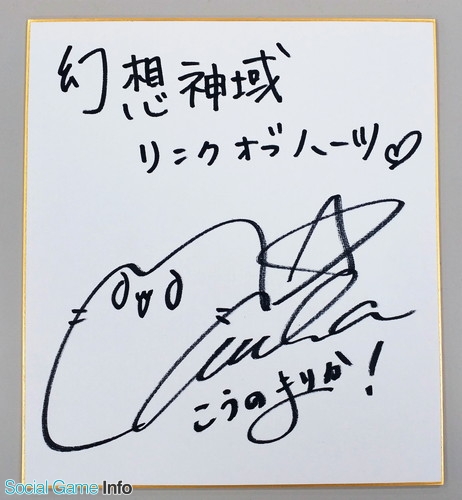 幻想神域
リンクオブハーツ♡
こうのまりか!
Social Game Info